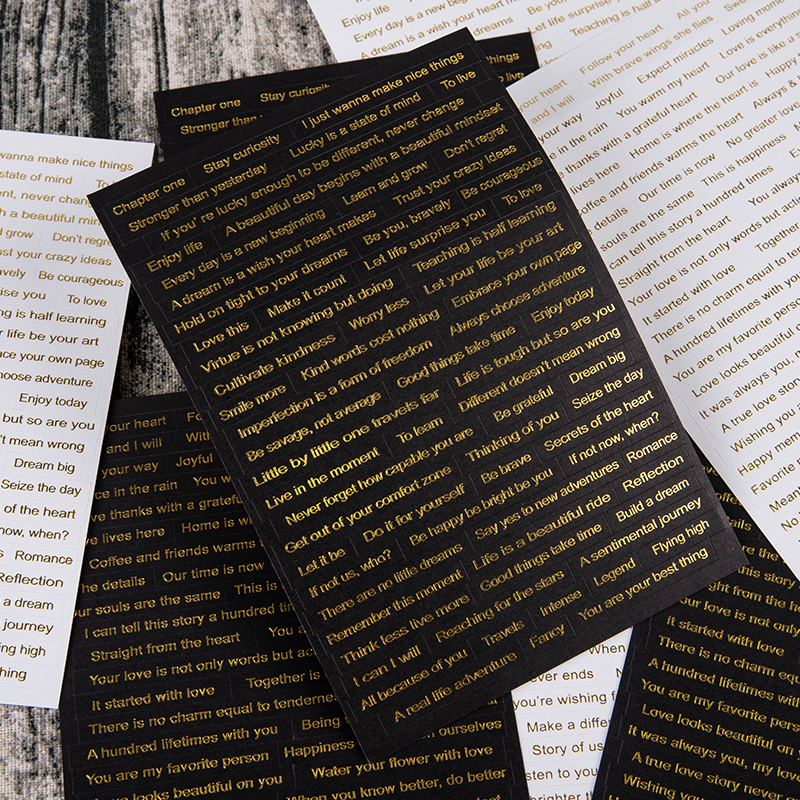 Enjoy life
Every day is a new beginning
A dream is a wish your heart
Let life surprise you
Teaching is half learning
Chapter one Stay curiosity
Stronger than
things
To live
Chapter one Stay curiosity I just wanna make nice things
Stronger than yesterday Lucky is a state of mind To live
If you're lucky enough to be different, never change
Enjoy life A beautiful day begins with a beautiful mindset
Every day is a new beginning Learn and grow Don't regret
A dream is a wish your heart makes Trust your crazy ideas
Hold on tight to your dreams Be you, bravely Be courageous
Love this Make it count Let life surprise you To love
Virtue is not knowing but doing Teaching is half learning
Cultivate kindness Worry less Let your life be your art
Smile more Kind words cost nothing Embrace your own page
Imperfection is a form of freedom Always choose adventure
Be savage, not average Good things take time Enjoy today
Little by little one travels far Life is tough but so are you
Live in the moment To learn Different doesn't mean wrong
Never forget how capable you are Be grateful Dream big
Get out of your comfort zone Thinking of you Seize the day
Let it be Do it for yourself Be brave Secrets of the heart
If not us, who? Be happy be bright be you If not now, when?
There are no little dreams Say yes to new adventures Romance
Remember this moment Life is a beautiful ride Reflection
Think less live more Good things take time Build a dream
I can I will Reaching for the stars A sentimental journey
All because of you Travels Intense Legend Flying high
A real life adventure Fancy You are your best thing
wanna make nice things
state of mind To live
never change
Don't regret
your crazy ideas
Be courageous
To love
is half learning
life be your art
your own page
choose adventure
Enjoy today
but so are you
mean wrong
Dream big
Seize the day
of the heart
now, when?
Romance
Reflection
a dream
journey
high
thing
your heart Follow your heart All you
and I will With brave wings she flies Sweet
your way Joyful Expect miracles Loving
in the rain You warm my heart Love is everything
thanks with a grateful heart Our love is like a
lives here Home is where the heart is Happy
Coffee and friends warms the heart Always &
details Our time is now No greater love
souls are the same This is happiness
can tell this story a hundred times
Straight from the heart You always
Your love is not only words but
It started with love Together
There is no charm equal to
A hundred lifetimes with you
You are my favorite person
Love looks beautiful on
It was always you
A true love story
Wishing you
Happy
Favorite
your heart
and I will With
your way Joyful
in the rain You
thanks with a grateful
lives here Home is
Coffee and friends warms
the details Our time is now
our souls are the same This is
I can tell this story a hundred
Straight from the heart
Your love is not only words but
It started with love Together is
There is no charm equal to
A hundred lifetimes with you Being
You are my favorite person Happiness ourselves
Love looks beautiful on you Water your flower with love
When you know better, do better
When
never ends
you're wishing
Make a
Story of us
listen to your
brighter
details
this story
from the
Your love is not only
It started with love
There is no charm equal
A hundred lifetimes with
You are my favorite person
Love looks beautiful on
It was always you, my
A true love story never
Wishing you